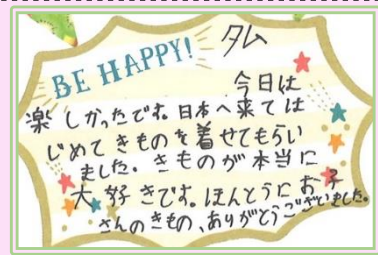 BE HAPPY!
タム
今日は
楽しかったです。日本へ来ては
じめてきものを着せてもらい
ました。きものが本当に
大好きです。ほんとうにお子
さんのきもの、ありがとうございました。